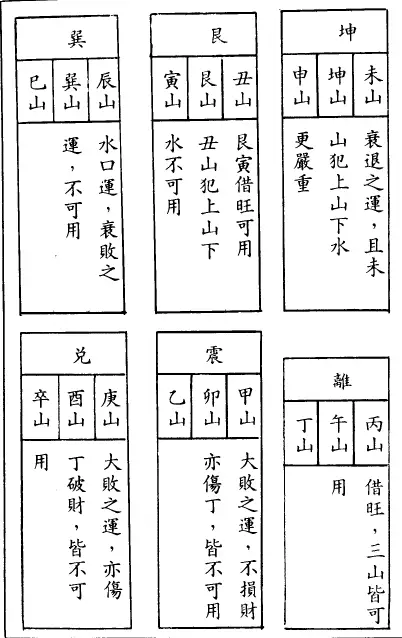 坤
未山
坤山
申山
衰退之運，且未
山犯上山下水
更嚴重
艮
丑山
艮山
寅山
艮寅借旺可用
丑山犯上山下
水不可用
巽
辰山
巽山
巳山
水口運，衰敗之
運，不可用
離
丙山
午山
丁山
借旺，三山皆可
用
震
甲山
卯山
乙山
大敗之運，不損財
亦傷丁，皆不可用
兑
庚山
酉山
卒山
大敗之運，亦傷
丁破財，皆不可
用